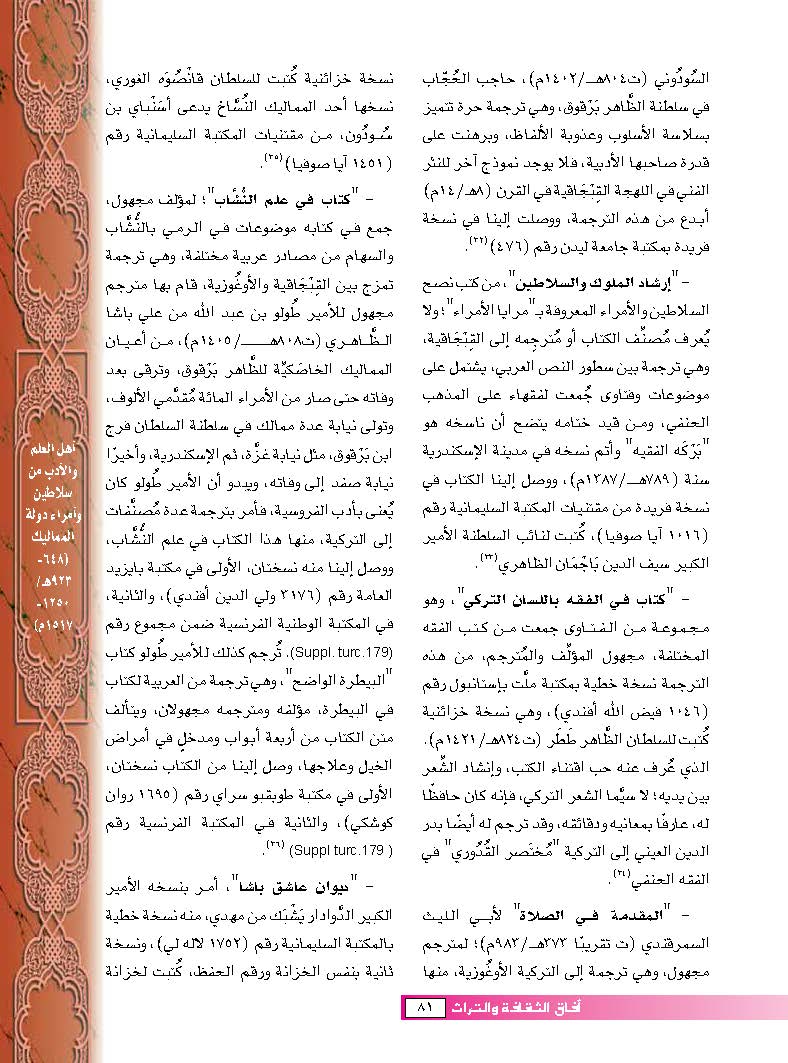 السُودُوني (ت٨٠٤هـ/١٤٠٢م)، حاجب الحُجّاب
في سلطنة الظَّاهر بَرْقوق، وهي ترجمة حرة تتميز
بسلاسة الأسلوب وعذوبة الألفاظ، وبرهنت على
قدرة صاحبها الأدبية، فلا يوجد نموذج آخر للنثر
الفني في اللهجة القِبْجَاقية في القرن (٨هـ/١٤م)
أبدع من هذه الترجمة، ووصلت إلينا في نسخة
فريدة بمكتبة جامعة ليدن رقم (٤٧٦)(٣٢).
- "إرشاد الملوك والسلاطين"، من كتب نصح
السلاطين والأمراء المعروفة بـ"مرايا الأمراء"؛ ولا
يُعرف مُصنِّف الكتاب أو مُترجِمه إلى القِبْجَاقية،
وهي ترجمة بين سطور النص العربي، يشتمل على
موضوعات وفتاوى جُمعت لفقهاء على المذهب
الحنفي، ومن قيد ختامه يتضح أن ناسخه هو
"بَرْكَه الفقيه" وأتم نسخه في مدينة الإسكندرية
سنة (٧٨٩هـ/١٣٨٧م)، ووصل إلينا الكتاب في
نسخة فريدة من مقتنيات المكتبة السليمانية رقم
(١٠١٦ آيا صوفيا)، كُتبت لنائب السلطنة الأمير
الكبير سيف الدين بَاجْمَان الظاهري(٣٣).
- "كتاب في الفقه باللسان التركي"، وهو
مجموعة من الفتاوى جمعت من كتب الفقه
المختلفة، مجهول المؤلِّف والمُترجم، من هذه
الترجمة نسخة خطية بمكتبة ملَّت بإستانبول رقم
(١٠٤٦ فيض الله أفندي)، وهي نسخة خزائنية
كُتبت للسلطان الظَّاهر طَطَر (ت٨٢٤هـ/١٤٢١م).
الذي عُرف عنه حب اقتناء الكتب، وإنشاد الشِّعر
بين يديه؛ لا سيَّما الشعر التركي، فإنه كان حافظًا
له، عارفًا بمعانيه ودقائقه، وقد ترجم له أيضًا بدر
الدين العيني إلى التركية "مُختَصر القُدُوري" في
الفقه الحنفي(٣٤).
- "المقدمة في الصلاة" لأبي الليث
السمرقندي (ت تقريبًا ٣٧٣هـ/٩٨٣م)؛ لمترجم
مجهول، وهي ترجمة إلى التركية الأوغُوزية، منها
نسخة خزائنية كُتبت للسلطان قانْصُوَه الغوري،
نسخها أحد المماليك النُسَّاخ يدعى أسَنْباي بن
سُودُون، من مقتنيات المكتبة السليمانية رقم
(١٤٥١ آيا صوفيا)(٣٥).
- "كتاب في علم النُّشَّاب"؛ لمؤلف مجهول،
جمع في كتابه موضوعات في الرمي بالنُّشَّاب
والسهام من مصادر عربية مختلفة، وهي ترجمة
تمزج بين القِبْجَاقية والأوغُوزية، قام بها مترجم
مجهول للأمير طُولو بن عبد الله من علي باشا
الظَّاهري (ت٨٠٨هـ/١٤٠٥م)، من أعيان
المماليك الخاصَكيَّة للظَّاهر بَرْقوق، وترقى بعد
وفاته حتى صار من الأمراء المائة مُقدَّمي الألوف،
وتولى نيابة عدة ممالك في سلطنة السلطان فرج
ابن بَرْقوق، مثل نيابة غزَّة، ثم الإسكندرية، وأخيرًا
نيابة صفد إلى وفاته، ويبدو أن الأمير طُولو كان
يُعنى بأدب الفروسية، فأمر بترجمة عدة مُصنَّفات
إلى التركية، منها هذا الكتاب في علم النُّشَّاب،
ووصل إلينا منه نسختان، الأولى في مكتبة بايزيد
العامة رقم (٣١٧٦ ولي الدين أفندي)، والثانية،
في المكتبة الوطنية الفرنسية ضمن مجموع رقم
(Suppl. turc.179). تُرجم كذلك للأمير طُولو كتاب
"البيطرة الواضح"، وهي ترجمة من العربية لكتاب
في البيطرة، مؤلفه ومترجمه مجهولان، ويتألف
متن الكتاب من أربعة أبواب ومدخلٍ في أمراض
الخيل وعلاجها، وصل إلينا من الكتاب نسختان،
الأولى في مكتبة طوبقبو سراي رقم (١٦٩٥ روان
كوشكي)، والثانية في المكتبة الفرنسية رقم
(Suppl turc.179 )(٣٦).
- "ديوان عاشق باشا"، أمر بنسخه الأمير
الكبير الدَّوادار يَشْبَك من مهدي، منه نسخة خطية
بالمكتبة السليمانية رقم (١٧٥٢ لاله لي)، ونسخة
ثانية بنفس الخزانة ورقم الحفظ، كُتبت لخزانة
أهل العلم
والأدب من
سلاطين
وأمراء دولة
المماليك
(٦٤٨-
٩٢٣هـ/
١٢٥٠-
١٥١٧م)
آفاق الثقافة والتراث ٨١